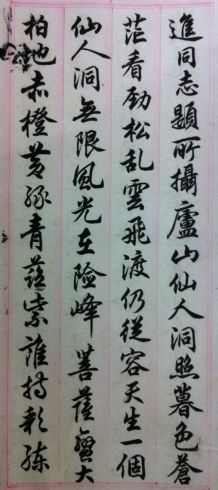 進同志題所攝廬山仙人洞照暮色蒼
茫看劲松乱雲飛渡仍從容天生一個
仙人洞無限風光在险峰 菩薩蠻大
柏地赤橙黄緑青藍紫誰持彩練